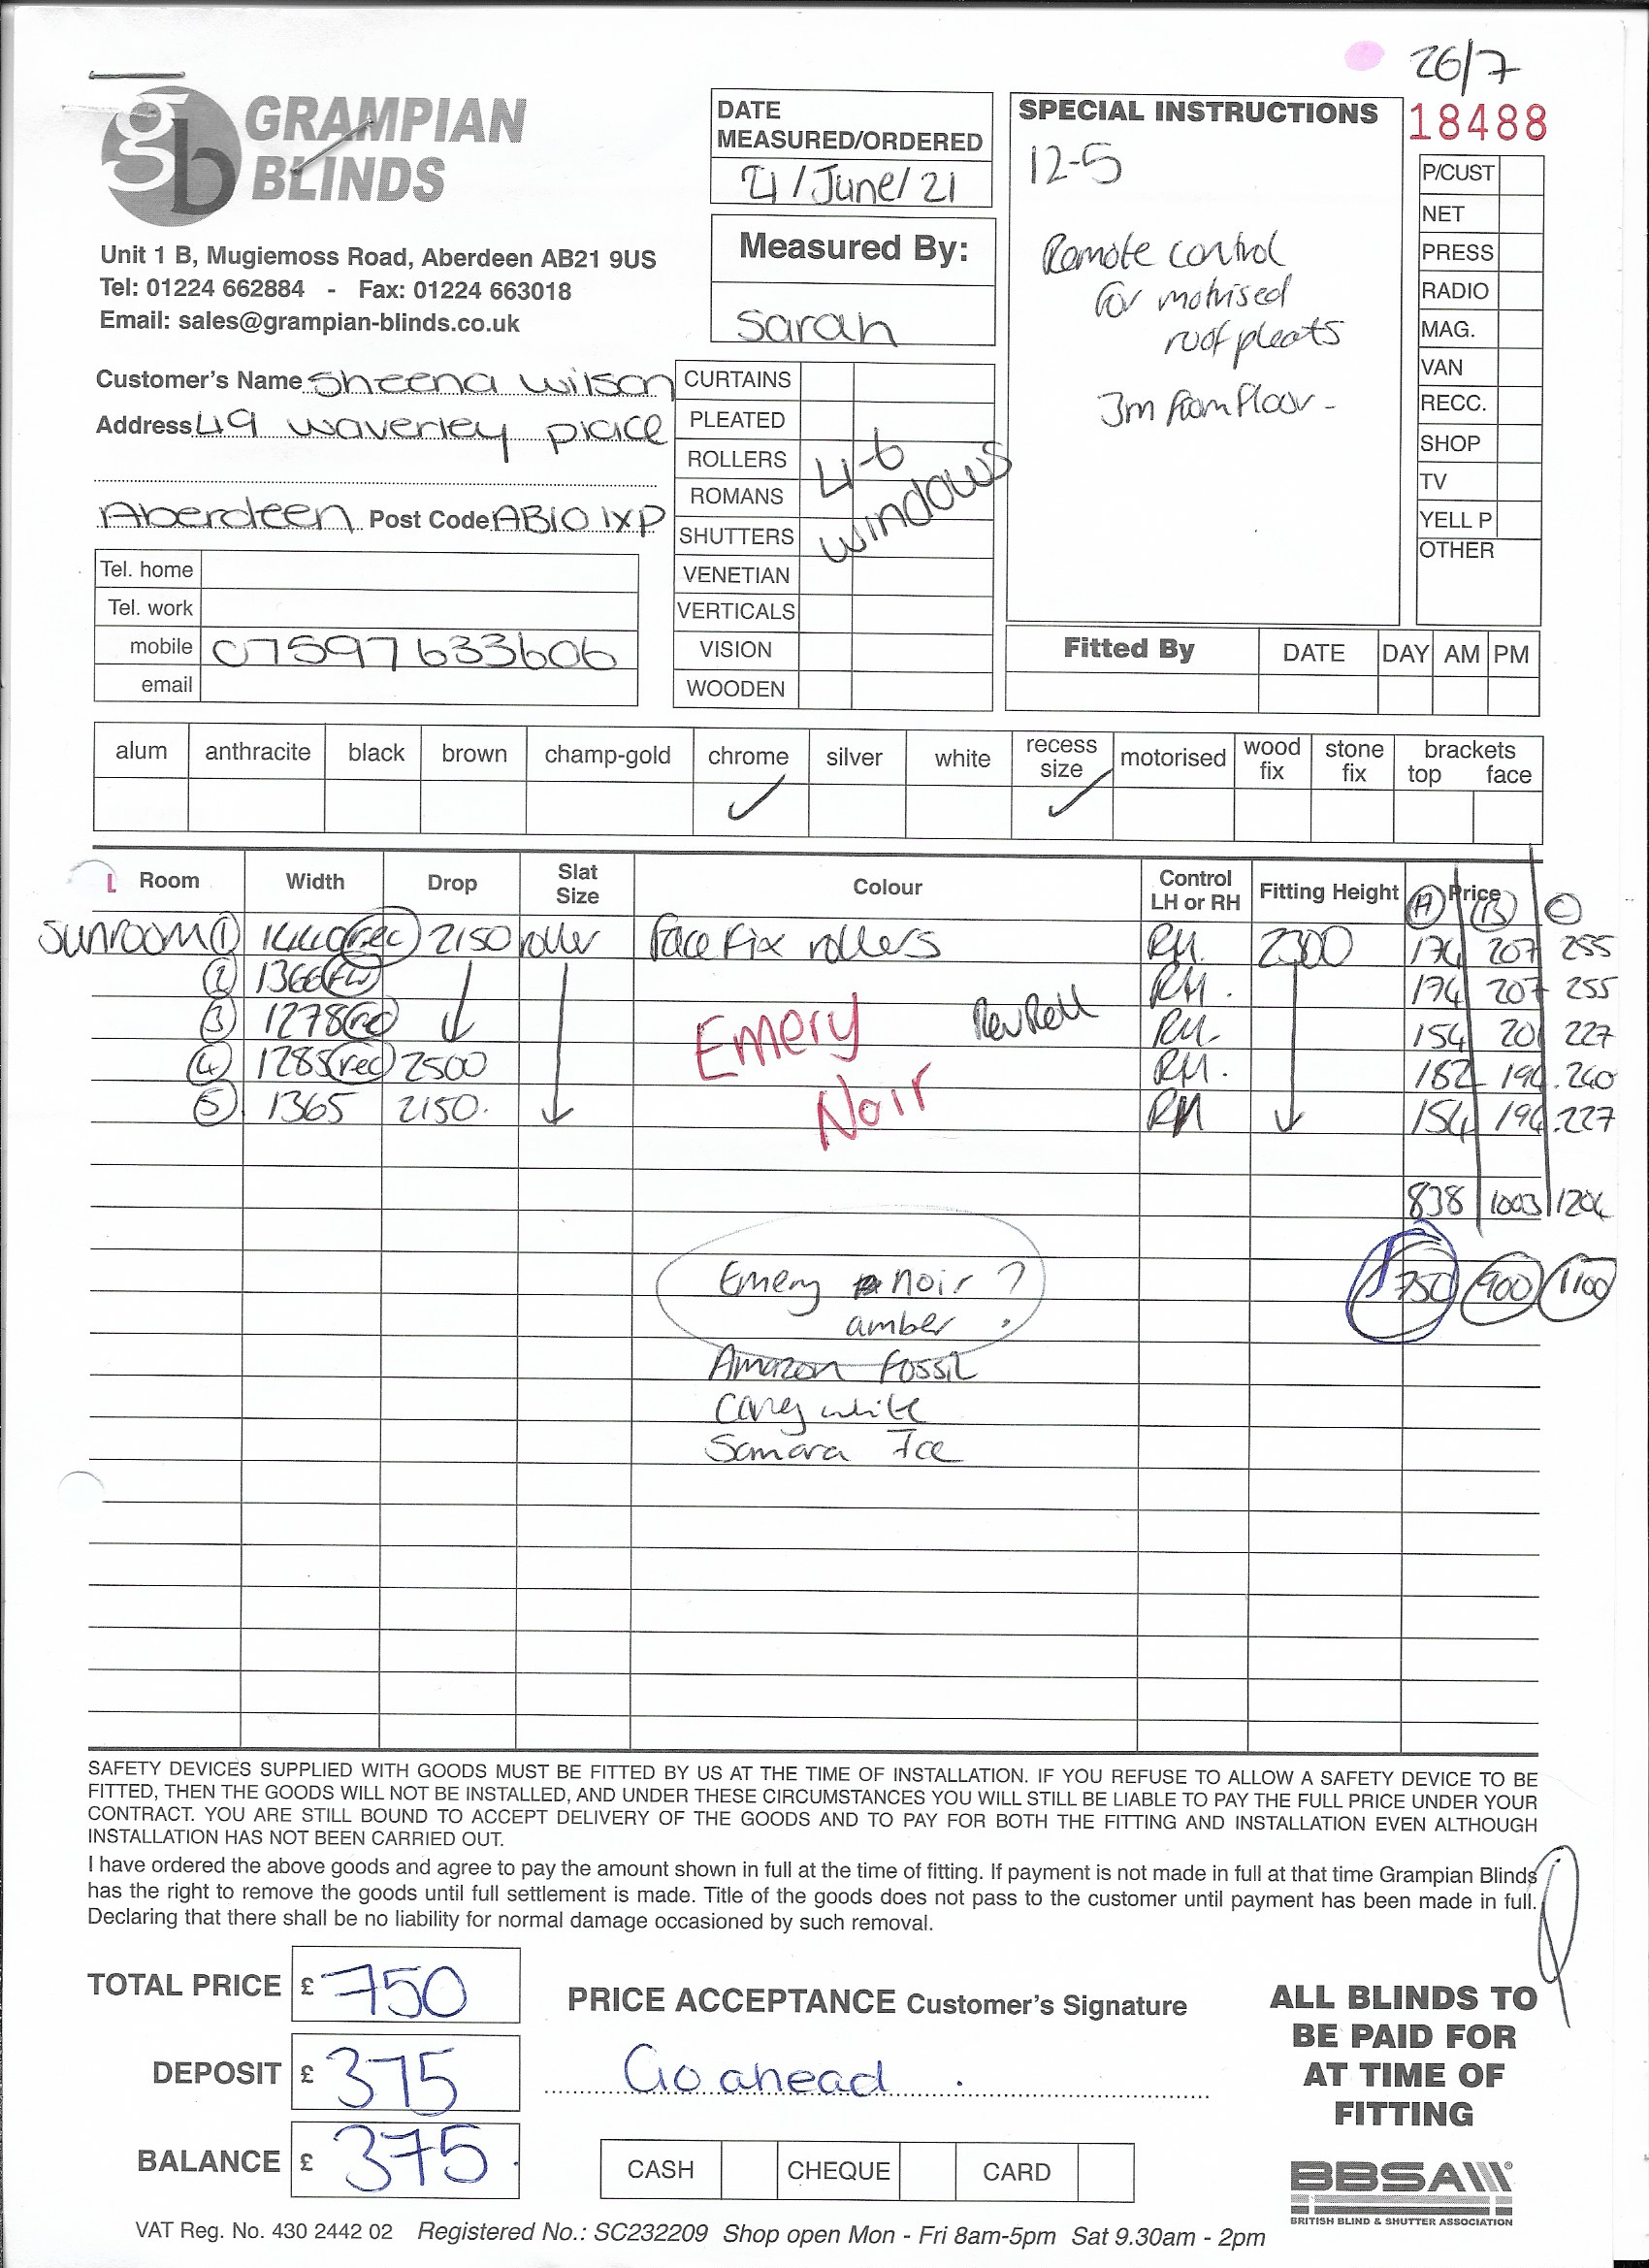 26/7
18488
gb GRAMPIAN
BLINDS
Unit 1 B, Mugiemoss Road, Aberdeen AB21 9US
Tel: 01224 662884 - Fax: 01224 663018
Email: sales@grampian-blinds.co.uk
DATE
MEASURED/ORDERED
21/June/21
Measured By:
Sarah
SPECIAL INSTRUCTIONS
12-5
Remote control
for motrised
roof pleats
3m from floor -
P/CUST
NET
PRESS
RADIO
MAG.
VAN
RECC.
SHOP
TV
YELL P
OTHER
Customer's Name Sheena Wilson
Address 49 waverley place
Aberdeen Post Code AB10 1XP
Tel. home
Tel. work
mobile 07597633606
email
CURTAINS
PLEATED
ROLLERS
ROMANS
SHUTTERS
VENETIAN
VERTICALS
VISION
WOODEN
4-6
windows
Fitted By DATE DAY AM PM
alum anthracite black brown champ-gold chrome silver white recess size motorised wood fix stone fix brackets top face
✓ ✓
Room Width Drop Slat Size Colour Control LH or RH Fitting Height Price
A B C
Sunroom 1 1440 rec 2150 roller face fix rollers RH. 2300 174 207 255
2 1366 RH. 174 207 255
3 1278 rec Rev Roll RH. 154 201 227
4 1285 rec 2500 RH. 182 194. 240
5 1365 2150. RH 154 194.227
Emery
Noir
838 1003 1204
750 900 1100
Emery noir ?
amber
Amazon Fossil
Carey white
Samara Ice
SAFETY DEVICES SUPPLIED WITH GOODS MUST BE FITTED BY US AT THE TIME OF INSTALLATION. IF YOU REFUSE TO ALLOW A SAFETY DEVICE TO BE
FITTED, THEN THE GOODS WILL NOT BE INSTALLED, AND UNDER THESE CIRCUMSTANCES YOU WILL STILL BE LIABLE TO PAY THE FULL PRICE UNDER YOUR
CONTRACT. YOU ARE STILL BOUND TO ACCEPT DELIVERY OF THE GOODS AND TO PAY FOR BOTH THE FITTING AND INSTALLATION EVEN ALTHOUGH
INSTALLATION HAS NOT BEEN CARRIED OUT.
I have ordered the above goods and agree to pay the amount shown in full at the time of fitting. If payment is not made in full at that time Grampian Blinds
has the right to remove the goods until full settlement is made. Title of the goods does not pass to the customer until payment has been made in full.
Declaring that there shall be no liability for normal damage occasioned by such removal.
TOTAL PRICE £ 750
DEPOSIT £ 375
BALANCE £ 375.
PRICE ACCEPTANCE Customer's Signature
Go ahead.
CASH CHEQUE CARD
ALL BLINDS TO
BE PAID FOR
AT TIME OF
FITTING
BBSA
BRITISH BLIND & SHUTTER ASSOCIATION
VAT Reg. No. 430 2442 02 Registered No.: SC232209 Shop open Mon - Fri 8am-5pm Sat 9.30am - 2pm